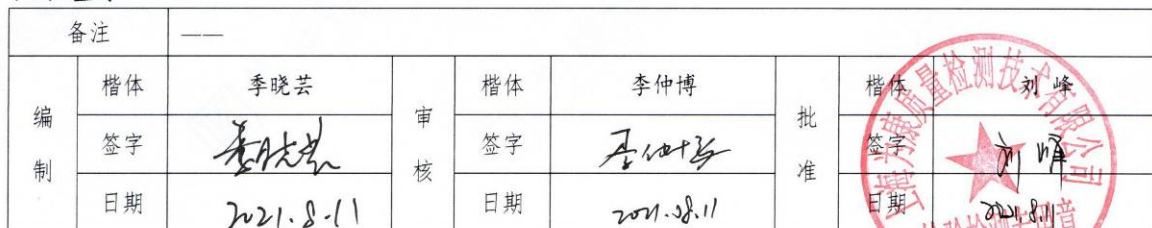 备注 ——
楷体 季晓芸 楷体 李仲博 楷体 刘峰
编制 审核 批准
签字 季晓芸 签字 李仲博 签字 刘峰
日期 2021.8.11 日期 2021.08.11 日期 2021.8.11
力康质量检测技术有限公司
检验检测专用章